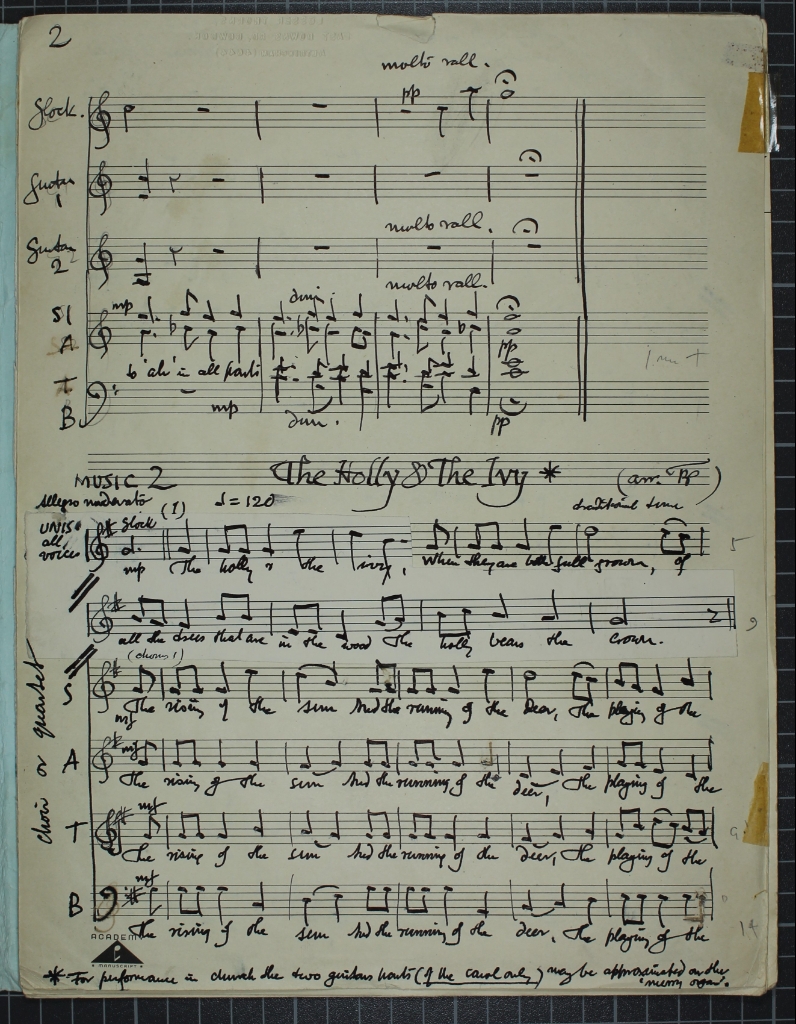 2
molto rall.
Glock.
pp
Guitar
1
molto rall.
Guitar
2
molto rall.
mp
dim.
S
A
pp
to 'ah' in all parts
T
B
mp
dim.
pp
MUSIC 2
The Holly & The Ivy *
(arr.
Allegro moderato
♩=120
traditional tune
UNISON
all
voices
Glock
(1)
mp
The holly & the ivy, When they are both full grown, of
5
all the trees that are in the wood The holly bears the crown.
9
(chorus 1)
choir or quartet
S
mf
The rising of the sun And the running of the deer, The playing of the
A
mf
The rising of the sun And the running of the deer, The playing of the
T
mf
The rising of the sun And the running of the deer, The playing of the
B
mf
The rising of the sun And the running of the deer, The playing of the
14
ACADEMY
MANUSCRIPT
* For performance in church the two guitar parts (of the carol only) may be approximated on the
'merry organ'.